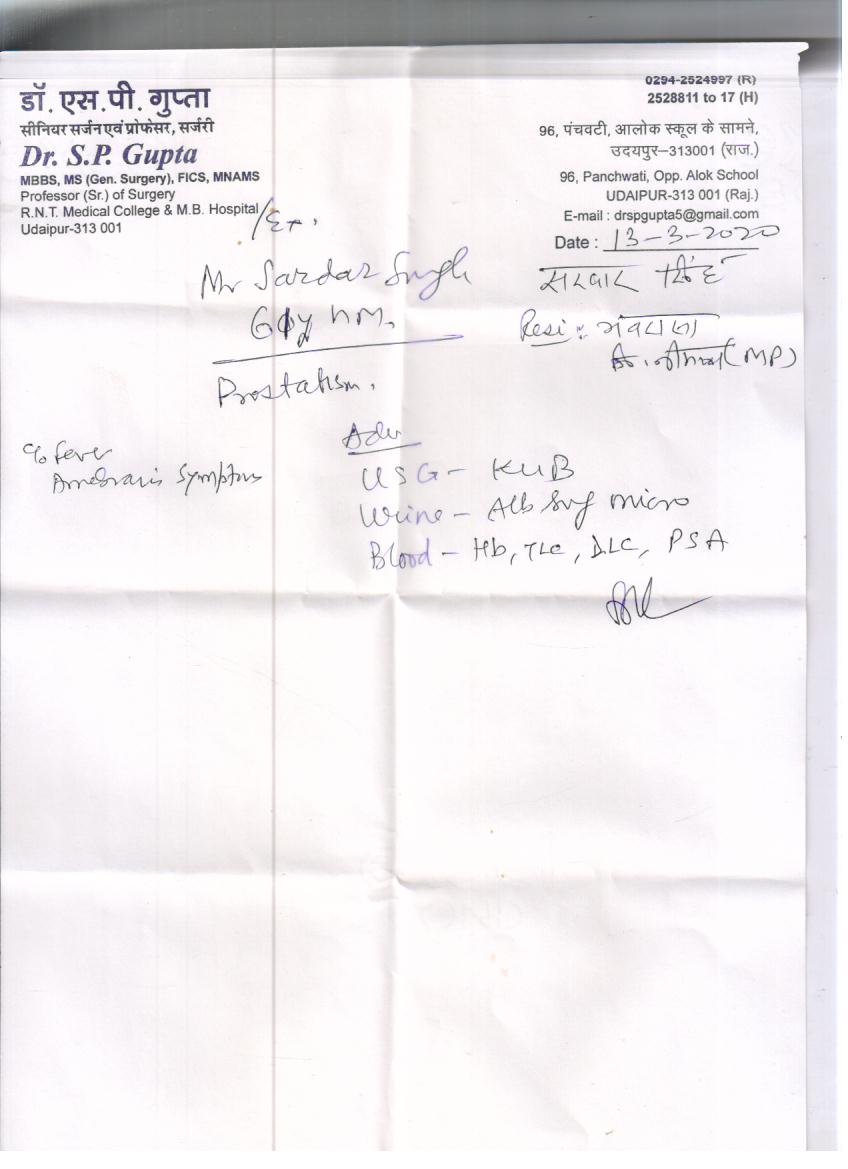 डॉ. एस.पी. गुप्ता
सीनियर सर्जन एवं प्रोफेसर, सर्जरी
Dr. S.P. Gupta
MBBS, MS (Gen. Surgery), FICS, MNAMS
Professor (Sr.) of Surgery
R.N.T. Medical College & M.B. Hospital
Udaipur-313 001
0294-2524997 (R)
2528811 to 17 (H)
96, पंचवटी, आलोक स्कूल के सामने,
उदयपुर–313001 (राज.)
96, Panchwati, Opp. Alok School
UDAIPUR-313 001 (Raj.)
E-mail : drspgupta5@gmail.com
Date : 13-3-2020
Mr Sardar Singh
सरदार सिंह
Resi :
(MP)
Prostatism.
c/o fever
Symptms
Adv
USG - KUB
Urine - Alb Sug micro
Blood - Hb, TLC, DLC, PSA